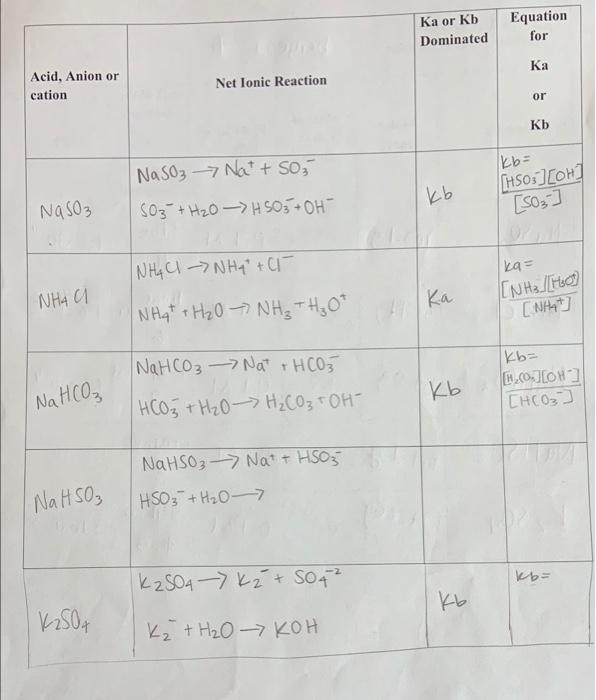 Acid, Anion or
cation
Net Ionic Reaction
Ka or Kb
Dominated
Equation
for
Ka
or
Kb
NaSO₃
NaSO₃ → Na⁺ + SO₃⁻
SO₃⁻ + H₂O → HSO₃⁻ + OH⁻
Kb
Kb=
[HSO₃⁻][OH⁻]
[SO₃⁻]
NH₄Cl
NH₄Cl → NH₄⁺ + Cl⁻
NH₄⁺ + H₂O → NH₃ + H₃O⁺
Ka
Ka=
[NH₃][H₃O⁺]
[NH₄⁺]
NaHCO₃
NaHCO₃ → Na⁺ + HCO₃⁻
HCO₃⁻ + H₂O → H₂CO₃ + OH⁻
Kb
Kb=
[H₂CO₃][OH⁻]
[HCO₃⁻]
NaHSO₃
NaHSO₃ → Na⁺ + HSO₃⁻
HSO₃⁻ + H₂O →
K₂SO₄
K₂SO₄ → K₂⁻ + SO₄⁻²
K₂⁻ + H₂O → KOH
Kb
Kb=